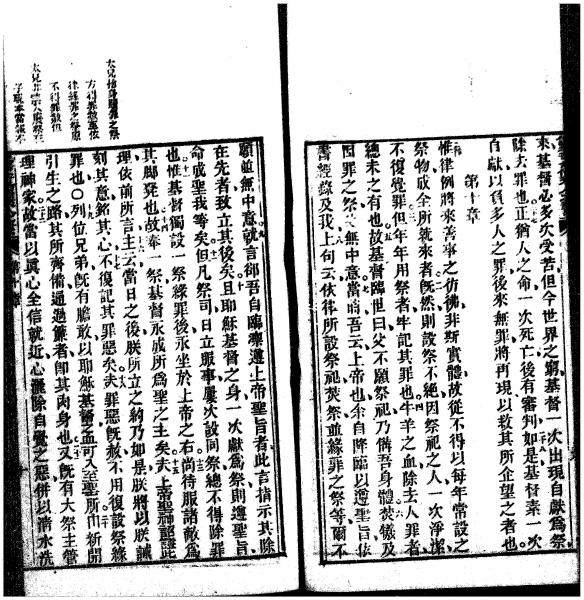 來基督必多次受苦但今世界之窮基督一次出現自獻爲祭
除去罪也正猶人之命一次死亡後有審判如是基督業一次
自獻以負多人之罪後來無罪將再現以救其所企望之者也
第十章
惟律例將來善事之彷彿非斯實體故從不得以每年常設之
祭物成全所就來者旣然則設祭不絕因祭祀之人一次淨潔
不復覺罪但年年用祭者牢記其罪也牛羊之血除去人罪者
總未之有也故基督臨世曰父不願祭祀乃備吾身體焚犧及
因罪之祭無中意當時吾云上帝也余自降臨以遵聖旨依
書經錄及我上句云依律所設祭祀焚祭並緣罪之祭等爾不
願並無中意就言卻吾自臨凜遵上帝聖旨者此言指示其除
在先者致立其後矣且耶穌基督之身一次獻爲祭則遵聖旨
命成聖我等矣但凡祭司日立服事屢次設同祭總不得除罪
也惟基督獨設一祭緣罪後永坐於上帝之右尚待服諸敵爲
其脚凳也故奉一祭基督永成所爲聖之主矣夫上帝聖神證此
理依前所言主云當日之後朕所立之約乃如是朕將以朕誡
刻其意銘其心不復記其罪惡矣夫罪惡旣赦不用復設祭緣
罪也〇列位兄弟旣有膽敢以耶穌基督之血可入至聖所由新開
引生之路其所齊備通過簾者卽其肉身也又旣有大祭主管
理神家故當以眞心全信就近心灑除自覺之惡併以清水洗